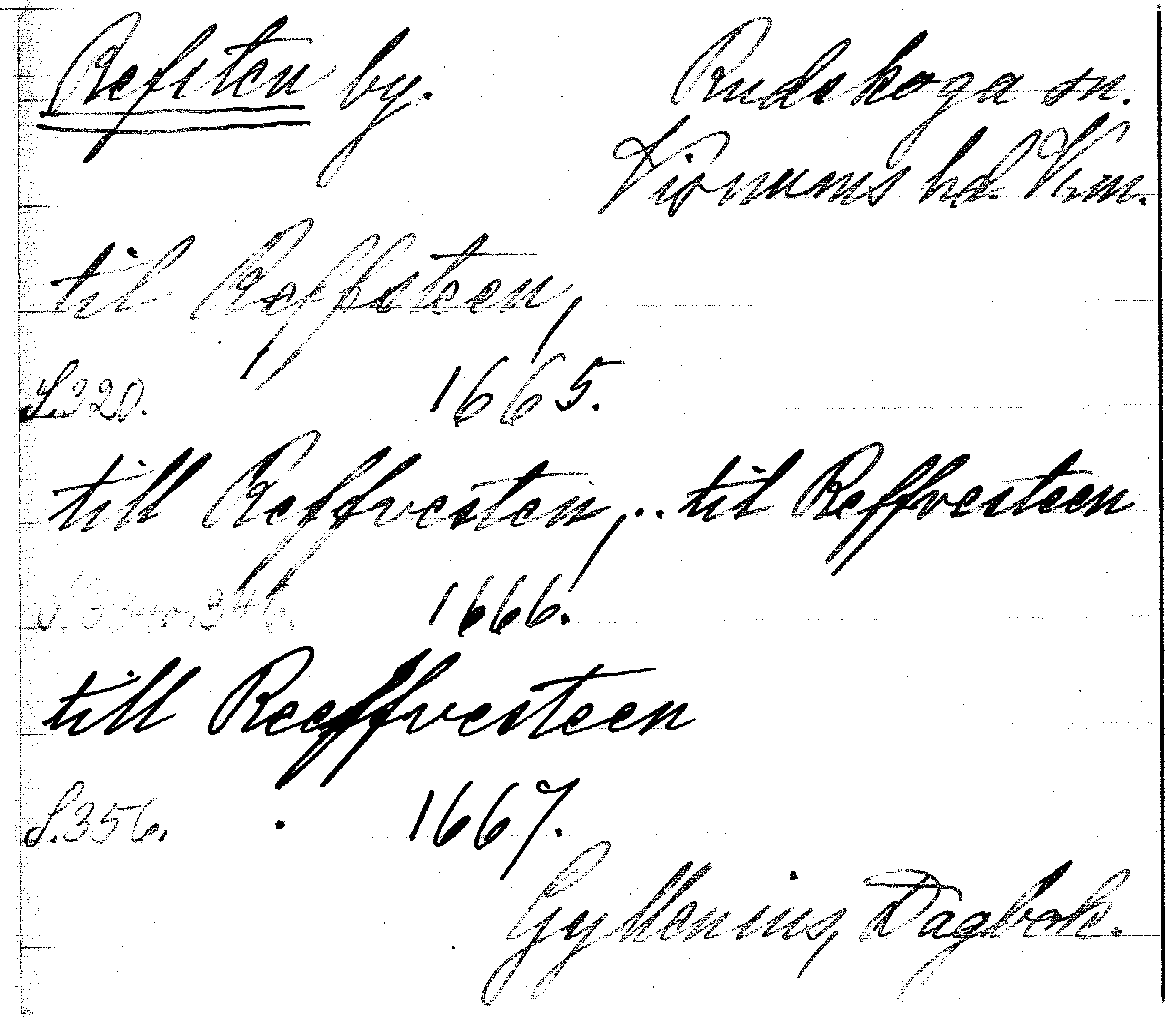 Refsten by. Rudskoga sn.
Visnums hd. Vrm.
til Reffsteen,
S.320. 1665.
till Reffvesten, .. til Reffvesteen
1666.
till Reeffvesteen
S.356. 1667.
Gyllenius, Dagbok.